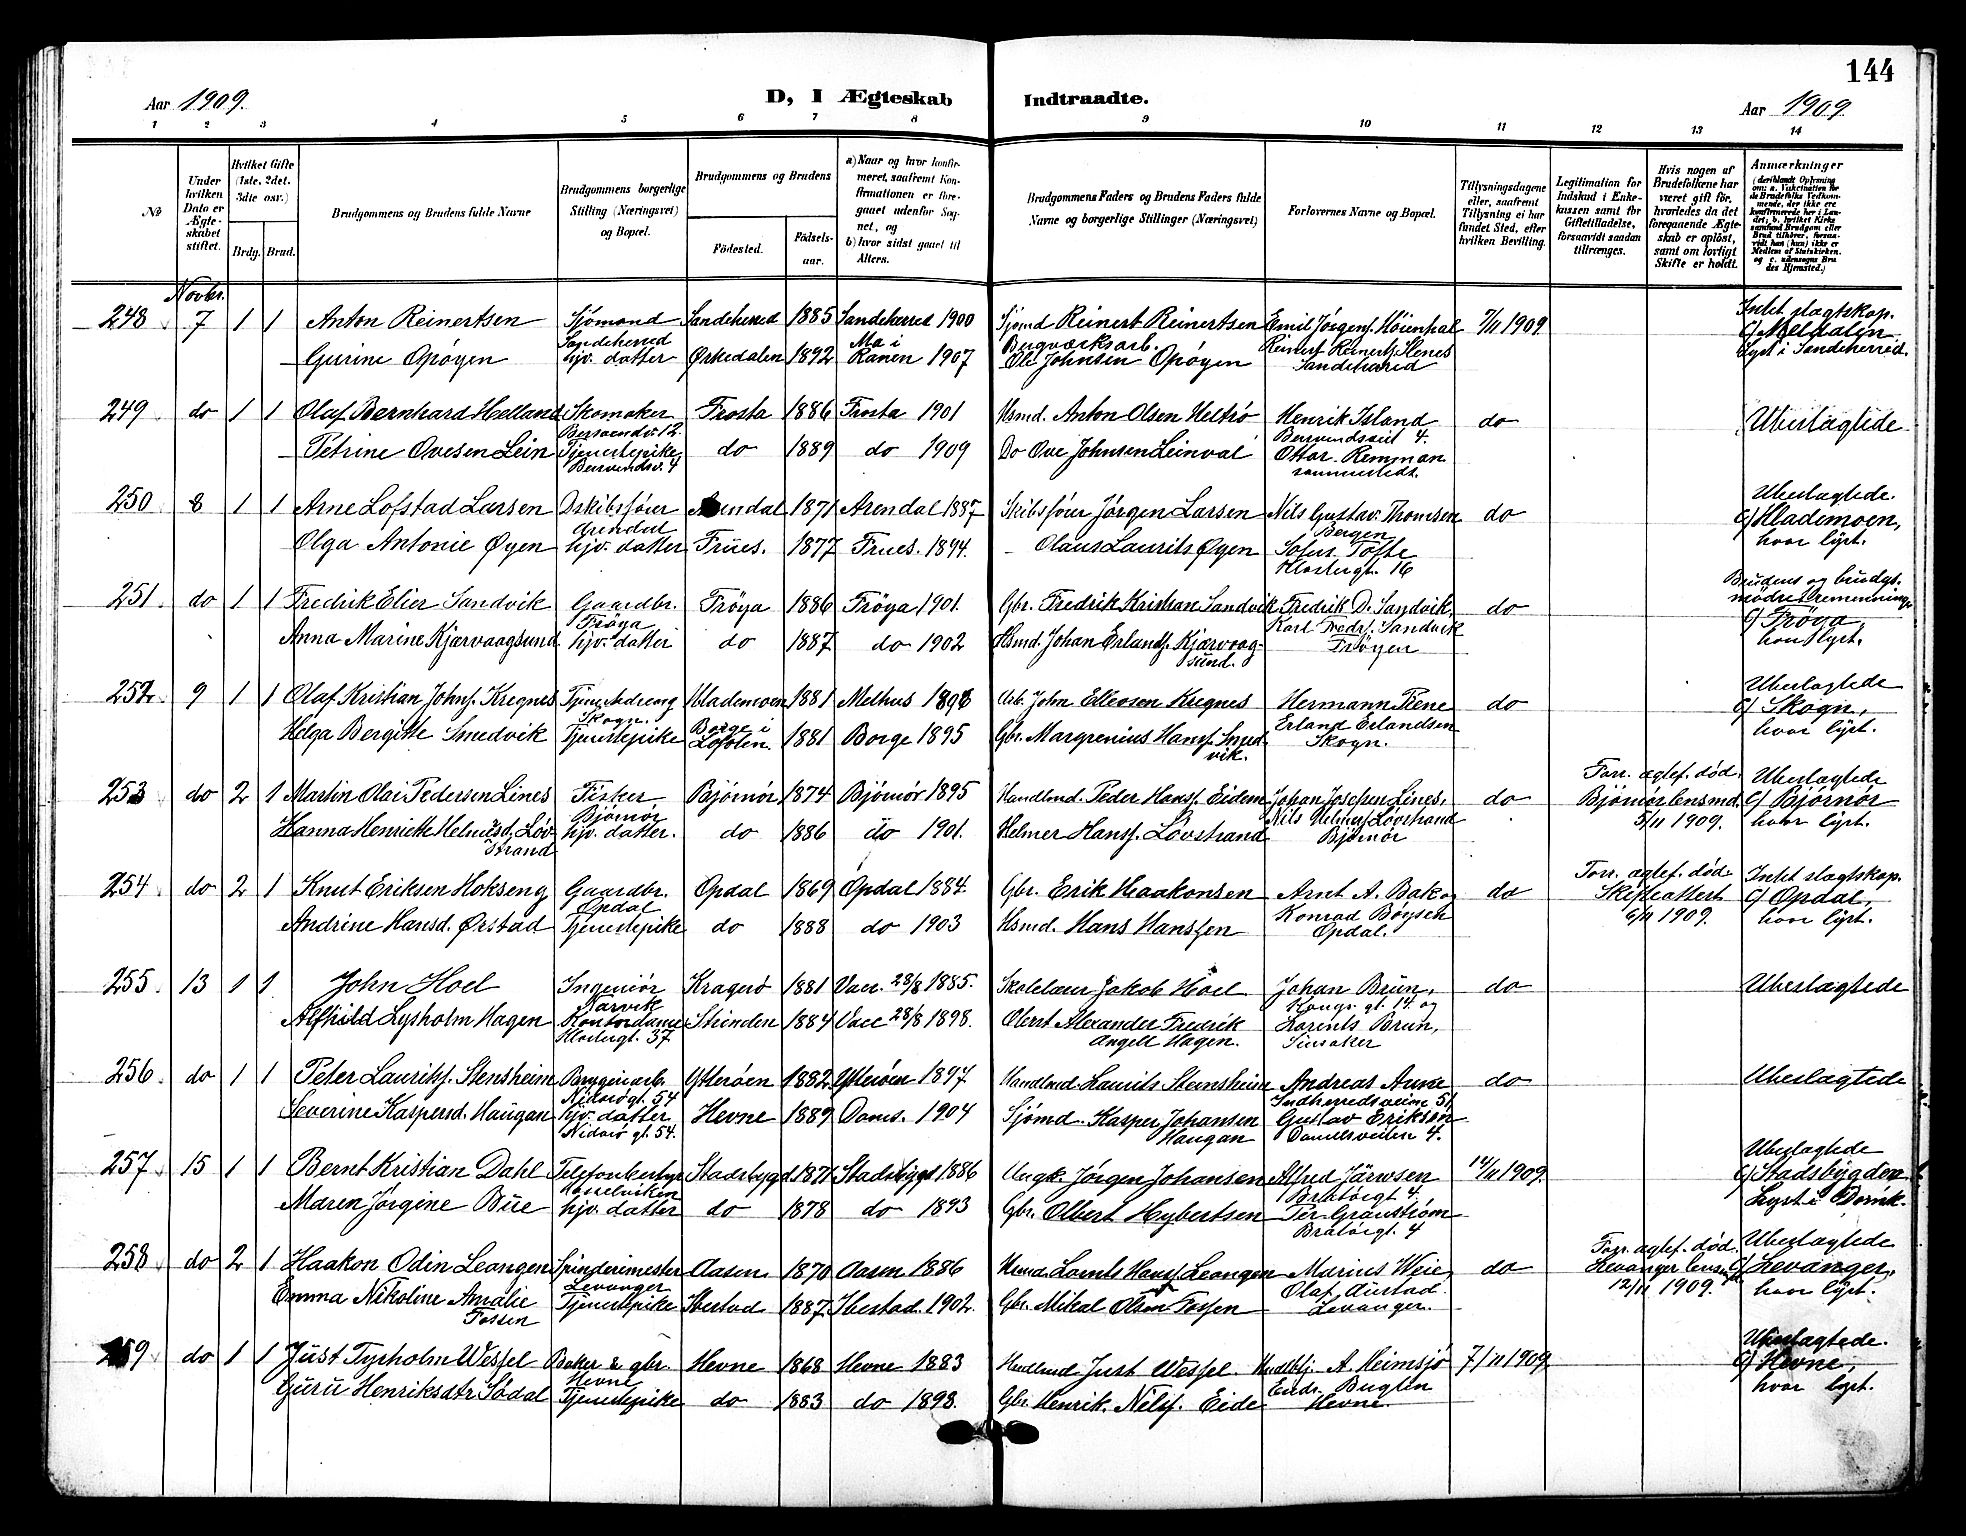 144
Aar 1909.
D, I Ægteskab Indtraadte.
Aar 1909.
1 2 3 4 5 6 7 8 9 10 11 12 13 14
№
Under hvilken Dato er Ægteskabet stiftet.
Hvilket Gifte (1ste, 2det, 3die osv.)
Brdg. Brud.
Brudgommens og Brudens fulde Navne
Brudgommens borgerlige Stilling (Næringsvei) og Bopæl.
Brudgommens og Brudens
Fødested.
Fødselsaar.
a) Naar og hvor konfirmeret, saafremt Konfirmationen er foregaaet udenfor Sognet, og
b) hvor sidst gaaet til Alters.
Brudgommens Faders og Brudens Faders fulde Navne og borgerlige Stillinger (Næringsvei)
Forlovernes Navne og Bopæl.
Tillysningsdagene eller, saafremt Tillysning ei har fundet Sted, efter hvilken Bevilling.
Legitimation for Indskud i Enkekassen samt for Giftetilladelse, forsaavidt saadan tiltrænges.
Hvis nogen af Brudefolkene har været gift før, hvorledes da det foregaaende Ægteskab er opløst, samt om lovligt Skifte er holdt.
Anmærkninger
Novbr.
248 7 1 1 Anton Reinertsen Sjømand Sandeherred Sandeherred 1885 Sandeherred 1900 Sjømd Reinert Reinertsen Emil Jørgens. 7/11 1909 Intet slagtskap.
Gurine Opøyen hjv. datter Ørkedalen 1892 Ma i Ranen 1907 Ole Johnsen Opøyen Sandeherred Lyst i Sandeherred.
249 do 1 1 Olaf Bernhard Helland Skomaker Frosta 1886 Frosta 1901 Hsmd. Anton Olsen Henrik Island do Ubeslagtede
Petrine Ovesen Lein Tjenestepike do 1889 do 1909 Do Ove Johnsen Ottar Remman sammesteds.
250 8 1 1 Arne Lofstad Larsen Arendal Arendal 1871 Arendal 1887 Skibsfører Jørgen Larsen Nils Gustav Thomsen Bergen do Ubeslagtede. Hlademoen, hvor lyst.
Olga Antonie Øyen hjv. datter Frues. 1877 Frues. 1894. Olaus Laurits Øyen Tofte Klostergt. 16
251 do 1 1 Fredrik Elier Sandvik Gaardbr. Frøya Frøya 1886 Frøya 1901. Gbr. Fredrik Kristian Sandvik Fredrik D. Sandvik do Brudens og brudgs. mødre
Anna Marine Kjærvaagsund hjv. datter do 1887 do 1902 Hsmd. Johan Erlands. Kjærvaagsund. Karl Fredrs. Sandvik Frøyen Frøya, hvor lyst.
252 9 1 1 Olaf Kristian Johns. Kregnes Tjenestedreng Skogn. Hlademoen 1881 Melhus 1896 Arb. John Ellevsen Kregnes Hermann Fiene do Ubeslagtede Skogn, hvor lyst.
Helga Bergitte Smedvik Tjenestepike Borge i Lofoten 1881 Borge 1895 Gbr. Margrenius Hans. Smedvik. Erland Erlandsen Skogn.
253 do 2 1 Martin Olai Pedersen Lines Fisker Bjørnør Bjørnør 1874 Bjørnør 1895 Handlmd. Peder Hans. Eidem Johan Josefsen Lines, do Forr. agtef. død. Bjørnør lensmd. 5/11 1909. Ubeslagtede Bjørnør hvor lyst.
Hanna Henriette Helmersd. Løvstrand hjv. datter. do 1886 do 1901. Helmer Hans. Løvstrand Nils Helmers. Løvstrand Bjørnør
254 do 2 1 Knut Eriksen Hokseng Gaardbr. Opdal Opdal 1869 Opdal 1884. Gbr. Erik Haakonsen Arnt A. Bak og do Forr. agtef. død Skifteattest 6/11 1909. Intet slagtskap. Opdal, hvor lyst.
Andrine Hansd. Ørstad Tjenestepike do 1888 do 1903 Hsmd. Hans Hanssen Konrad Bøysen Opdal.
255. 13 1 1 John Hoel Ingeniør Narvik Kragerø 1881 Vacc. 28/8 1885. Skolelærer Jakob Hoel Johan Brun, gt. 14 og do Ubeslagtede
Alfhild Lysholm Hagen Kontordame Klostergt. 37 Strinden 1884 Vacc 28/8 1898. Oberst Alexander Fredrik Angell Hagen. Lorents Brun,
256. do 1 1 Peter Laurits. Stensheim Nidarøgt. 54 Ytterøen 1882 Ytterøen 1897 Handlmd Laurits Stensheim Andreas Aune Indherredsveien 51 do Ubeslagtede
Severine Kaspersd. Haugan hjv. datter Nidarø gt. 54. Hevne 1889 Doms. 1904 Sjømd. Kasper Johansen Haugan Gustav Eriksen 4.
257 15 1 1 Bernt Kristian Dahl Hasselviken Stadsbygd. 1871 Stadsbygd 1886 Jørgen Johansen Alfred 4. 14/11 1909. Ubeslagtede Stadsbygden
Maren Jørgine Bue hjv. datter do 1878 do 1893 Gbr. Olbert Hybertsen Per Granstrøm Bratørgt. 4 Lyst i
258 do 2 1 Haakon Odin Leangen Spinderimester Levanger Aasen. 1870 Aasen 1886 Hans. Leangen Marius Weie do Forr. agtef. død. Levanger 12/11 1909. Ubeslagtede Levanger, hvor lyst.
Emma Nikoline Amalie Fossen Tjenestepike Ibestad 1887. Ibestad. 1902. Gbr. Mikal Olsen Fossen Olaf Austad Levanger.
259 do 1 1 Just Tyrholm Wessel Baker & gbr. Hevne Hevne 1868 Hevne 1883 Handlmd Just Wessel. A. Heimsjø 7/11 1909. Ubeslagtede. Hevne, hvor lyst.
Guru Henriksdtr Sødal Tjenestepike do 1883 do 1898. Gbr. Henrik Nils. Eide Hevne.